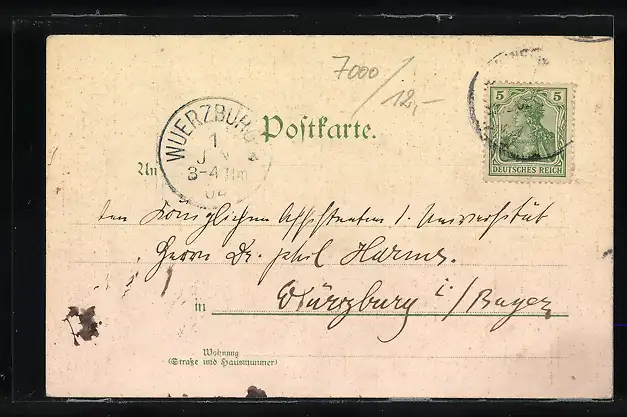 7000/12,-
5 5
DEUTSCHES REICH
WUERZBURG
1
JAN
3-4 Nm
04
Postkarte.
An
den Königlichen Assistenten d. Universität
Herrn Dr. phil Harms.
in Würzburg i./Bayern
Wohnung
(Straße und Hausnummer)